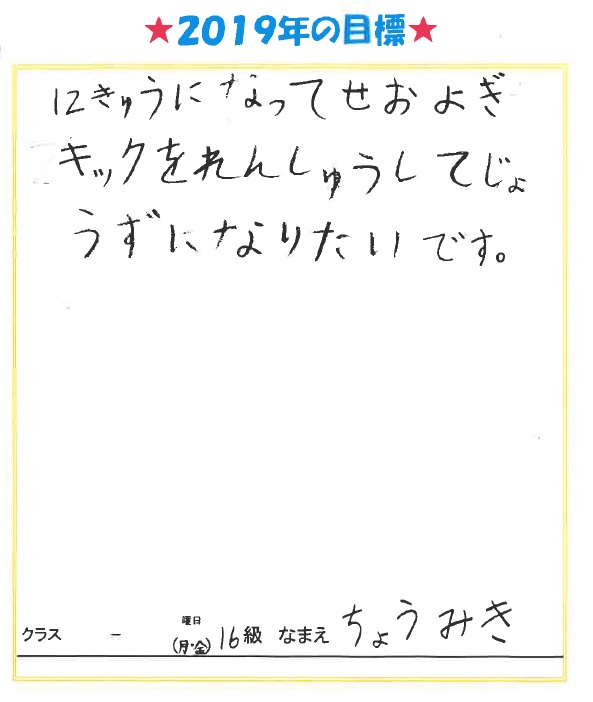 ★2019年の目標★
12きゅうになってせおよぎ
キックをれんしゅうしてじょ
うずになりたいです。
クラス - 曜日 (月・金) 16級 なまえ ちょうみき